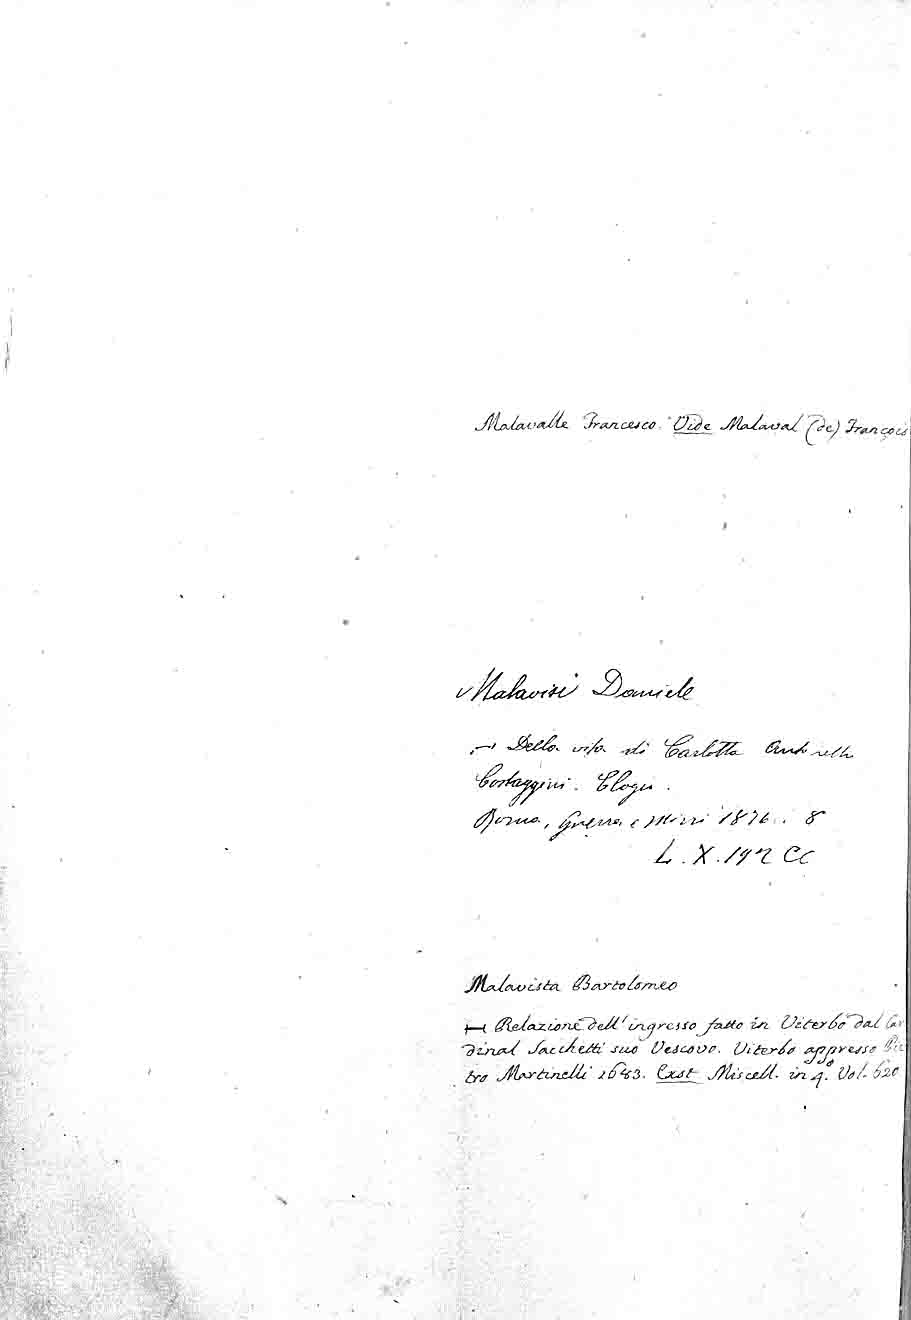 Malavalle Francesco. Vide Malaval (de) François
Malavisi Daniele
— Della vita di Carlotta
Costaggini. Elogio.
Roma, Guerra e Mirri 1876. 8
L. X. 192 CC
Malavista Bartolomeo
— Relazione dell' ingresso fatto in Viterbo dal Car
dinal Sacchetti suo Vescovo. Viterbo appresso Pie
tro Martinelli 1683. Exst Miscell. in 4.° Vol. 620